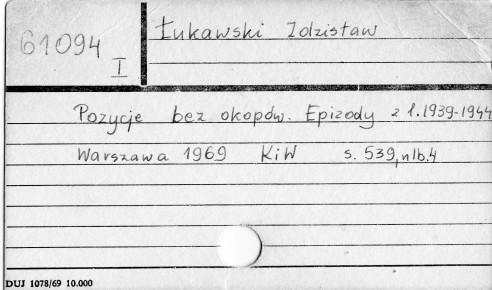 61094
I
Łukawski Zdzisław
Pozycje bez okopów. Epizody z l. 1939-1944
Warszawa 1969 KiW s. 539, nlb. 4
DUJ 1078/69 10.000